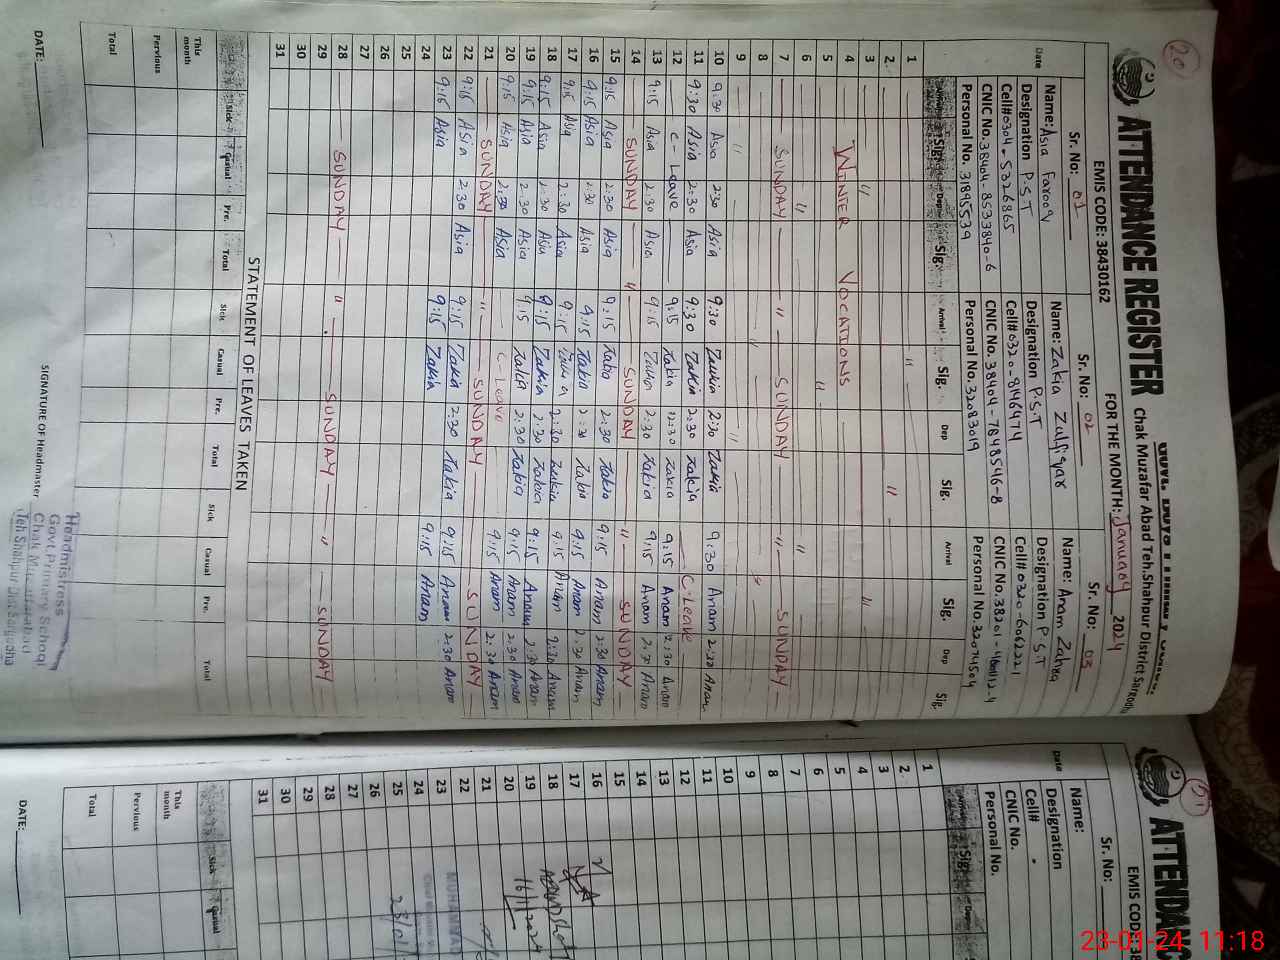 20
ATTENDANCE REGISTER
Chak Muzafar Abad Teh.Shahpur District Sargodha
EMIS CODE: 38430162
FOR THE MONTH: January 2024
Sr. No: 01
Sr. No: 02
Sr. No: 03
Name: Asia Farooq
Name: Zakia Zulfiqar
Name: Anam Zahra
Designation P.S.T
Designation P.S.T
Designation P.S.T
Cell# 0304-5326865
Cell# 0320-8146474
Cell# 0320-6062221
CNIC No. 38404-8533840-6
CNIC No. 38404-7848546-8
CNIC No. 38201-
Personal No. 31895539
Personal No. 32083019
Personal No. 32074504
Date
Sig. Dep Sig. Arrival Sig. Dep Sig. Arrival Sig. Dep Sig.
1
2
3
4 WINTER VOCATIONS
5
6
7 SUNDAY SUNDAY SUNDAY
8
9
10 9:30 Asia 2:30 Asia 9:30 Zakia 2:30 Zakia 9:30 Anam 2:30 Anam
11 9:30 Asia 2:30 Asia 9:30 Zakia 2:30 Zakia C-Leave
12 C-Leave 9:15 Zakia 12:30 Zakia 9:15 Anam 2:30 Anam
13 9:15 Asia 2:30 Asia 9:15 Zakia 2:30 Zakia 9:15 Anam 2:30 Anam
14 SUNDAY " SUNDAY " SUNDAY
15 9:15 Asia 2:30 Asia 9:15 Zakia 2:30 Zakia 9:15 Anam 2:30 Anam
16 9:15 Asia 2:30 Asia 9:15 Zakia 2:30 Zakia 9:15 Anam 2:30 Anam
17 9:15 Asia 2:30 Asia 9:15 Zakia 2:30 Zakia 9:15 Anam 2:30 Anam
18 9:15 Asia 2:30 Asia 9:15 Zakia 2:30 Zakia 9:15 Anam 2:30 Anam
19 9:15 Asia 2:30 Asia 9:15 Zakia 2:30 Zakia 9:15 Anam 2:30 Anam
20 9:15 Asia 2:30 Asia C-Leave 9:15 Anam 2:30 Anam
21 SUNDAY " SUNDAY SUNDAY
22 9:15 Asia 2:30 Asia 9:15 Zakia 2:30 Zakia 9:15 Anam 2:30 Anam
23 9:15 Asia 9:15 Zakia 9:15 Anam
24
25
26
27
28 SUNDAY " SUNDAY " SUNDAY
29
30
31
STATEMENT OF LEAVES TAKEN
Sick Casual Pre. Total Sick Casual Pre. Total Sick Casual Pre. Total
This month
Pervious
Total
DATE:
SIGNATURE OF Headmaster
Headmistress
Govt.Primary School
Chak Muzaffarabad
Teh Shahpur Dist Sargodha
ATTENDANC
Sr. No:
EMIS CODE: 38
Name:
Designation
Cell#
CNIC No.
Personal No.
Date
Sig.
1
2
3
4
5
6
7
8
9
10
11
12
13
14
15
16
17
18
19
20
21
22
23
24
25
26
27
28
29
30
31
16/1/2024
MUHAMMAD
Sick Casual
This month
Pervious
Total
DATE:
23-01-24 11:18